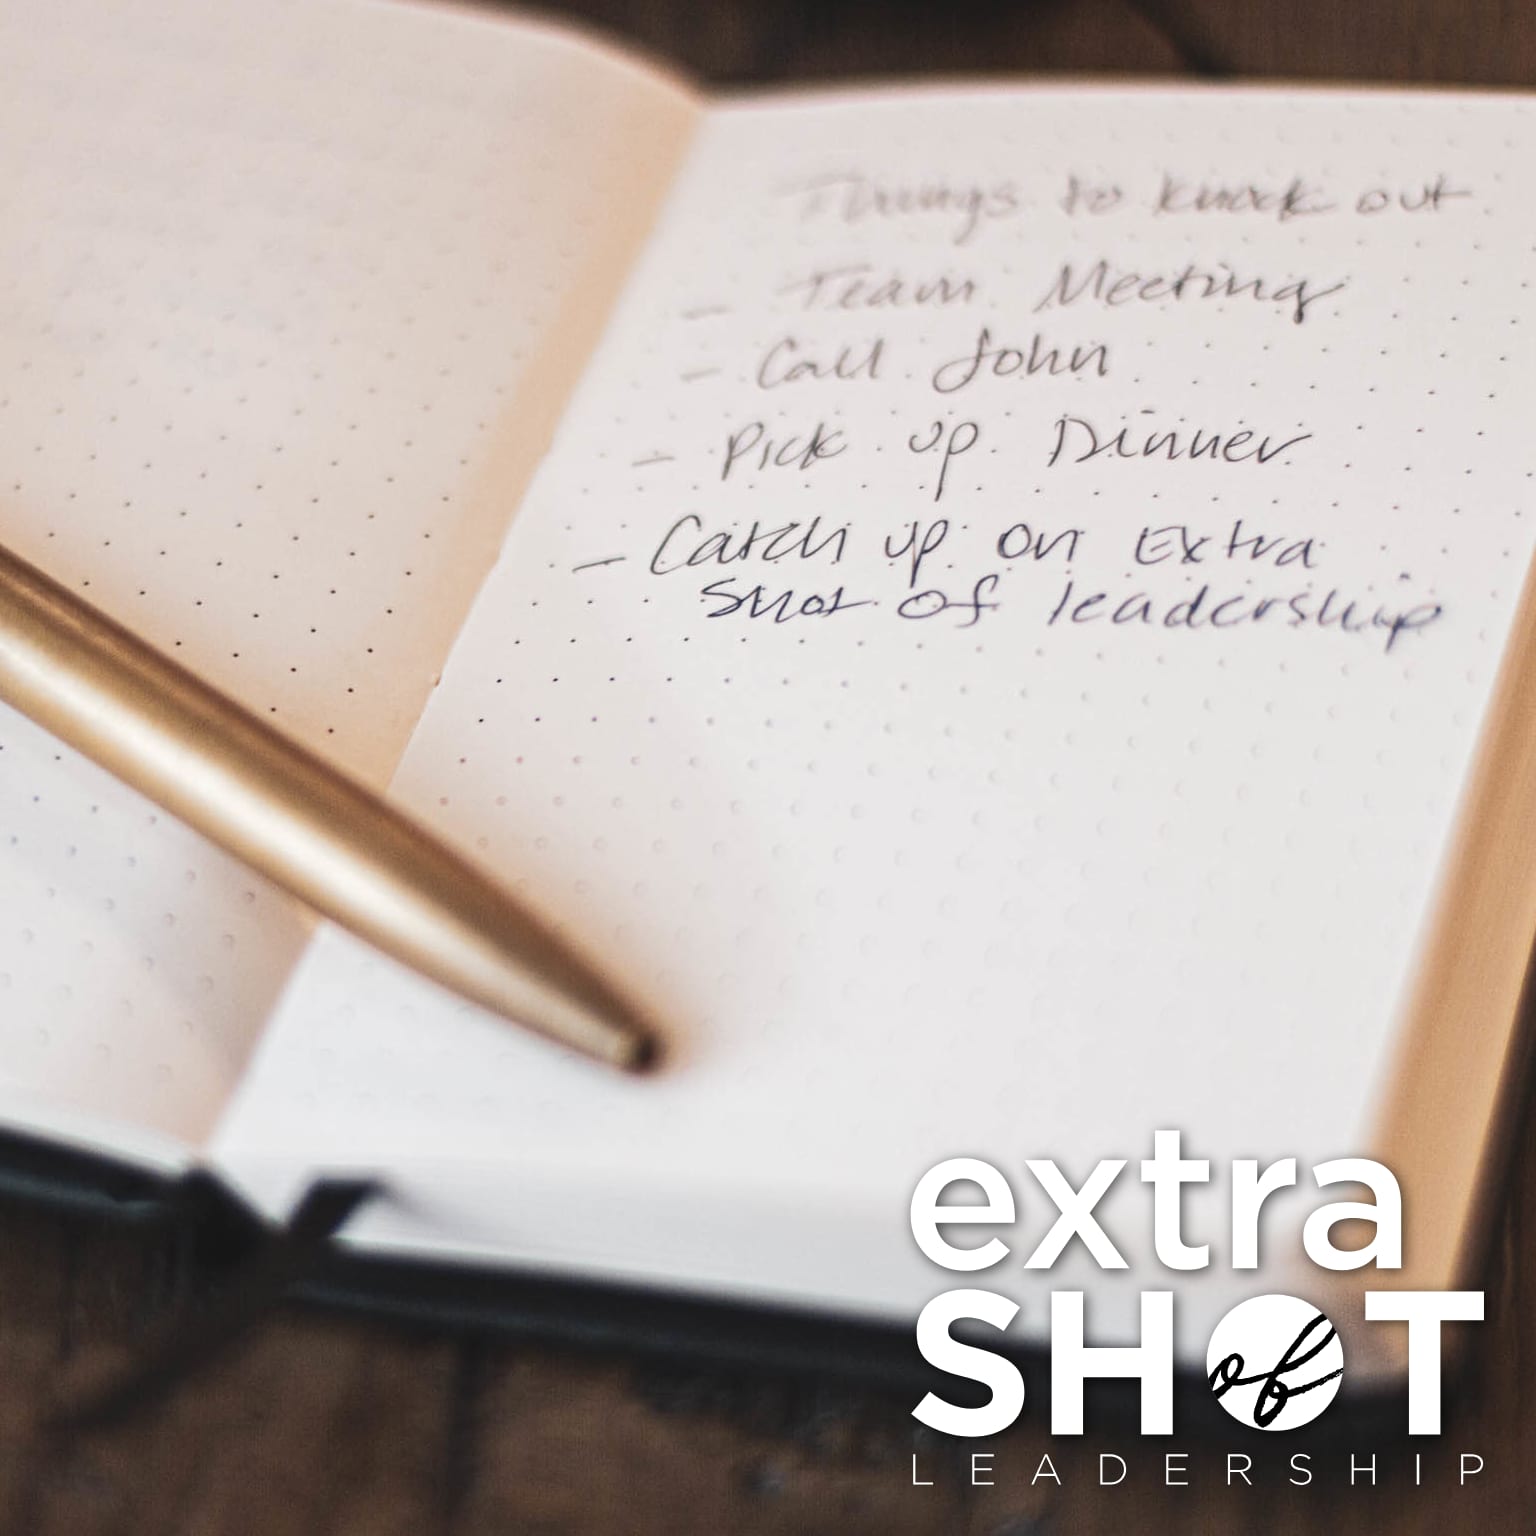 Things to knock out
- Team Meeting
- Call John
- Pick up Dinner
- Catch up on Extra
Shot of leadership
extra
SHOT
of
LEADERSHIP